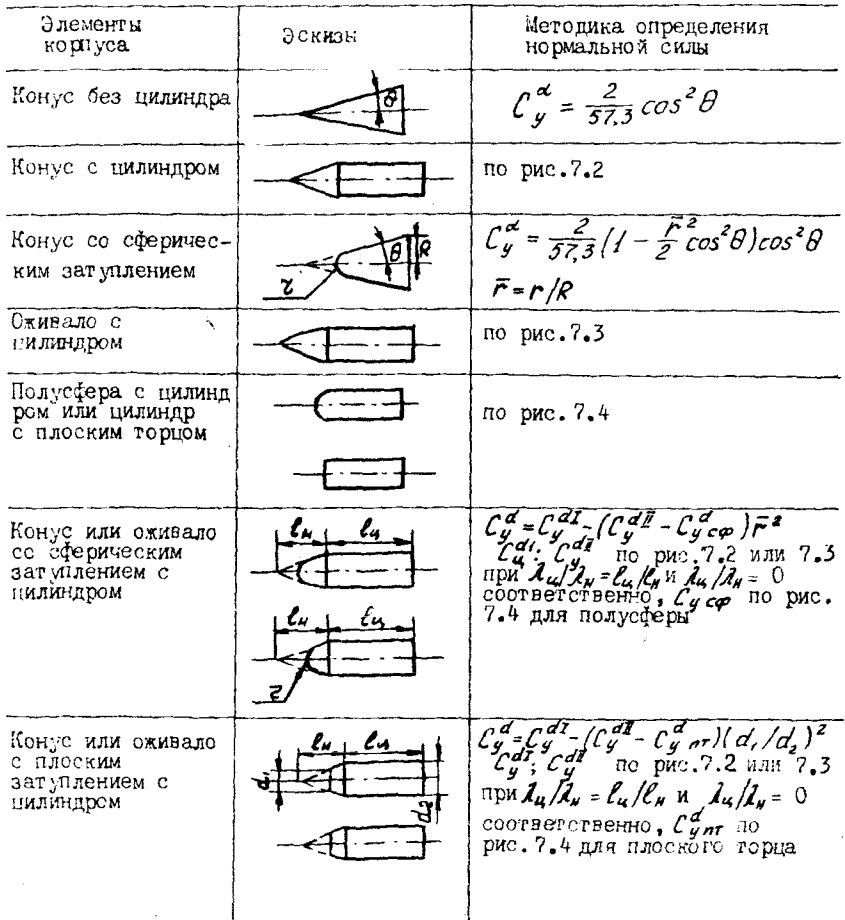 Элементы корпуса
Эскизы
Методика определения нормальной силы
Конус без цилиндра
θ
C_y^α = 2/57,3 cos²θ
Конус с цилиндром
по рис.7.2
Конус со сферичес-
ким затуплением
r
θ
R
C_y^α = 2/57,3 (1 - r̄²/2 cos²θ) cos²θ
r̄ = r/R
Оживало с
цилиндром
по рис.7.3
Полусфера с цилинд
ром или цилиндр
с плоским торцом
по рис.7.4
Конус или оживало
со сферическим
затуплением с
цилиндром
lн lц
lн lц
r
C_y^α = C_y^αI - (C_y^αII - C_y сф^α) r̄²
C_y^αI; C_y^αII по рис.7.2 или 7.3
при λц/λн = lц/lн и λц/λн = 0
соответственно, C_y сф^α по рис.
7.4 для полусферы
Конус или оживало
с плоским
затуплением с
цилиндром
lн lц
d₁
d₂
C_y^α = C_y^αI - (C_y^αII - C_y пт^α)(d₁/d₂)²
C_y^αI; C_y^αII по рис.7.2 или 7.3
при λц/λн = lц/lн и λц/λн = 0
соответственно, C_y пт^α по
рис.7.4 для плоского торца